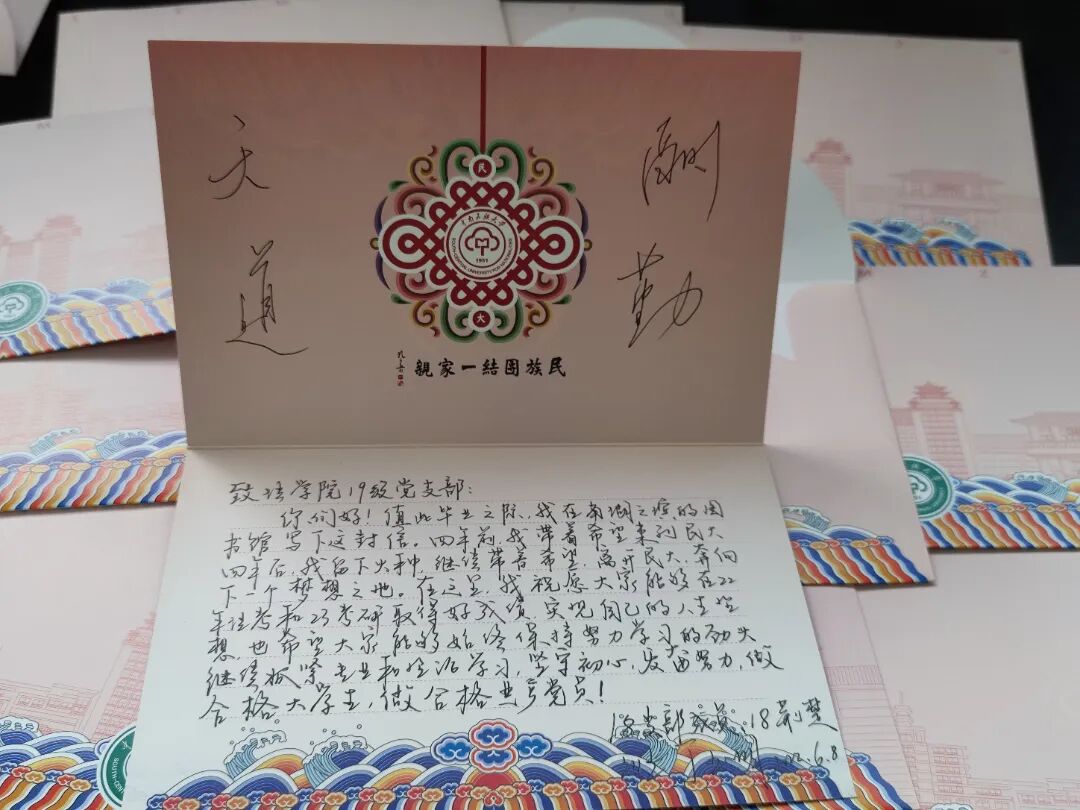 天道
酬勤
民
中南民族大学
SOUTH-CENTRAL UNIVERSITY FOR NATIONALITIES
1951
大
民族團結一家親
致法学院19级党支部：
你们好！值此毕业之际，我在南湖之滨的图
书馆写下这封信。四年前，我带着希望来到民大
四年后，我留下火种，继续带着希望，离开民大，奔向
下一个梦想之地。在这里，我祝愿大家能够在22
年法考和23考研取得好成绩，实现自己的人生理
想，也希望大家能够始终保持努力学习的劲头
继续抓紧专业和政治学习，坚守初心，发奋努力，做
合格大学生，做合格共产党员！
18荆楚
2022.6.8